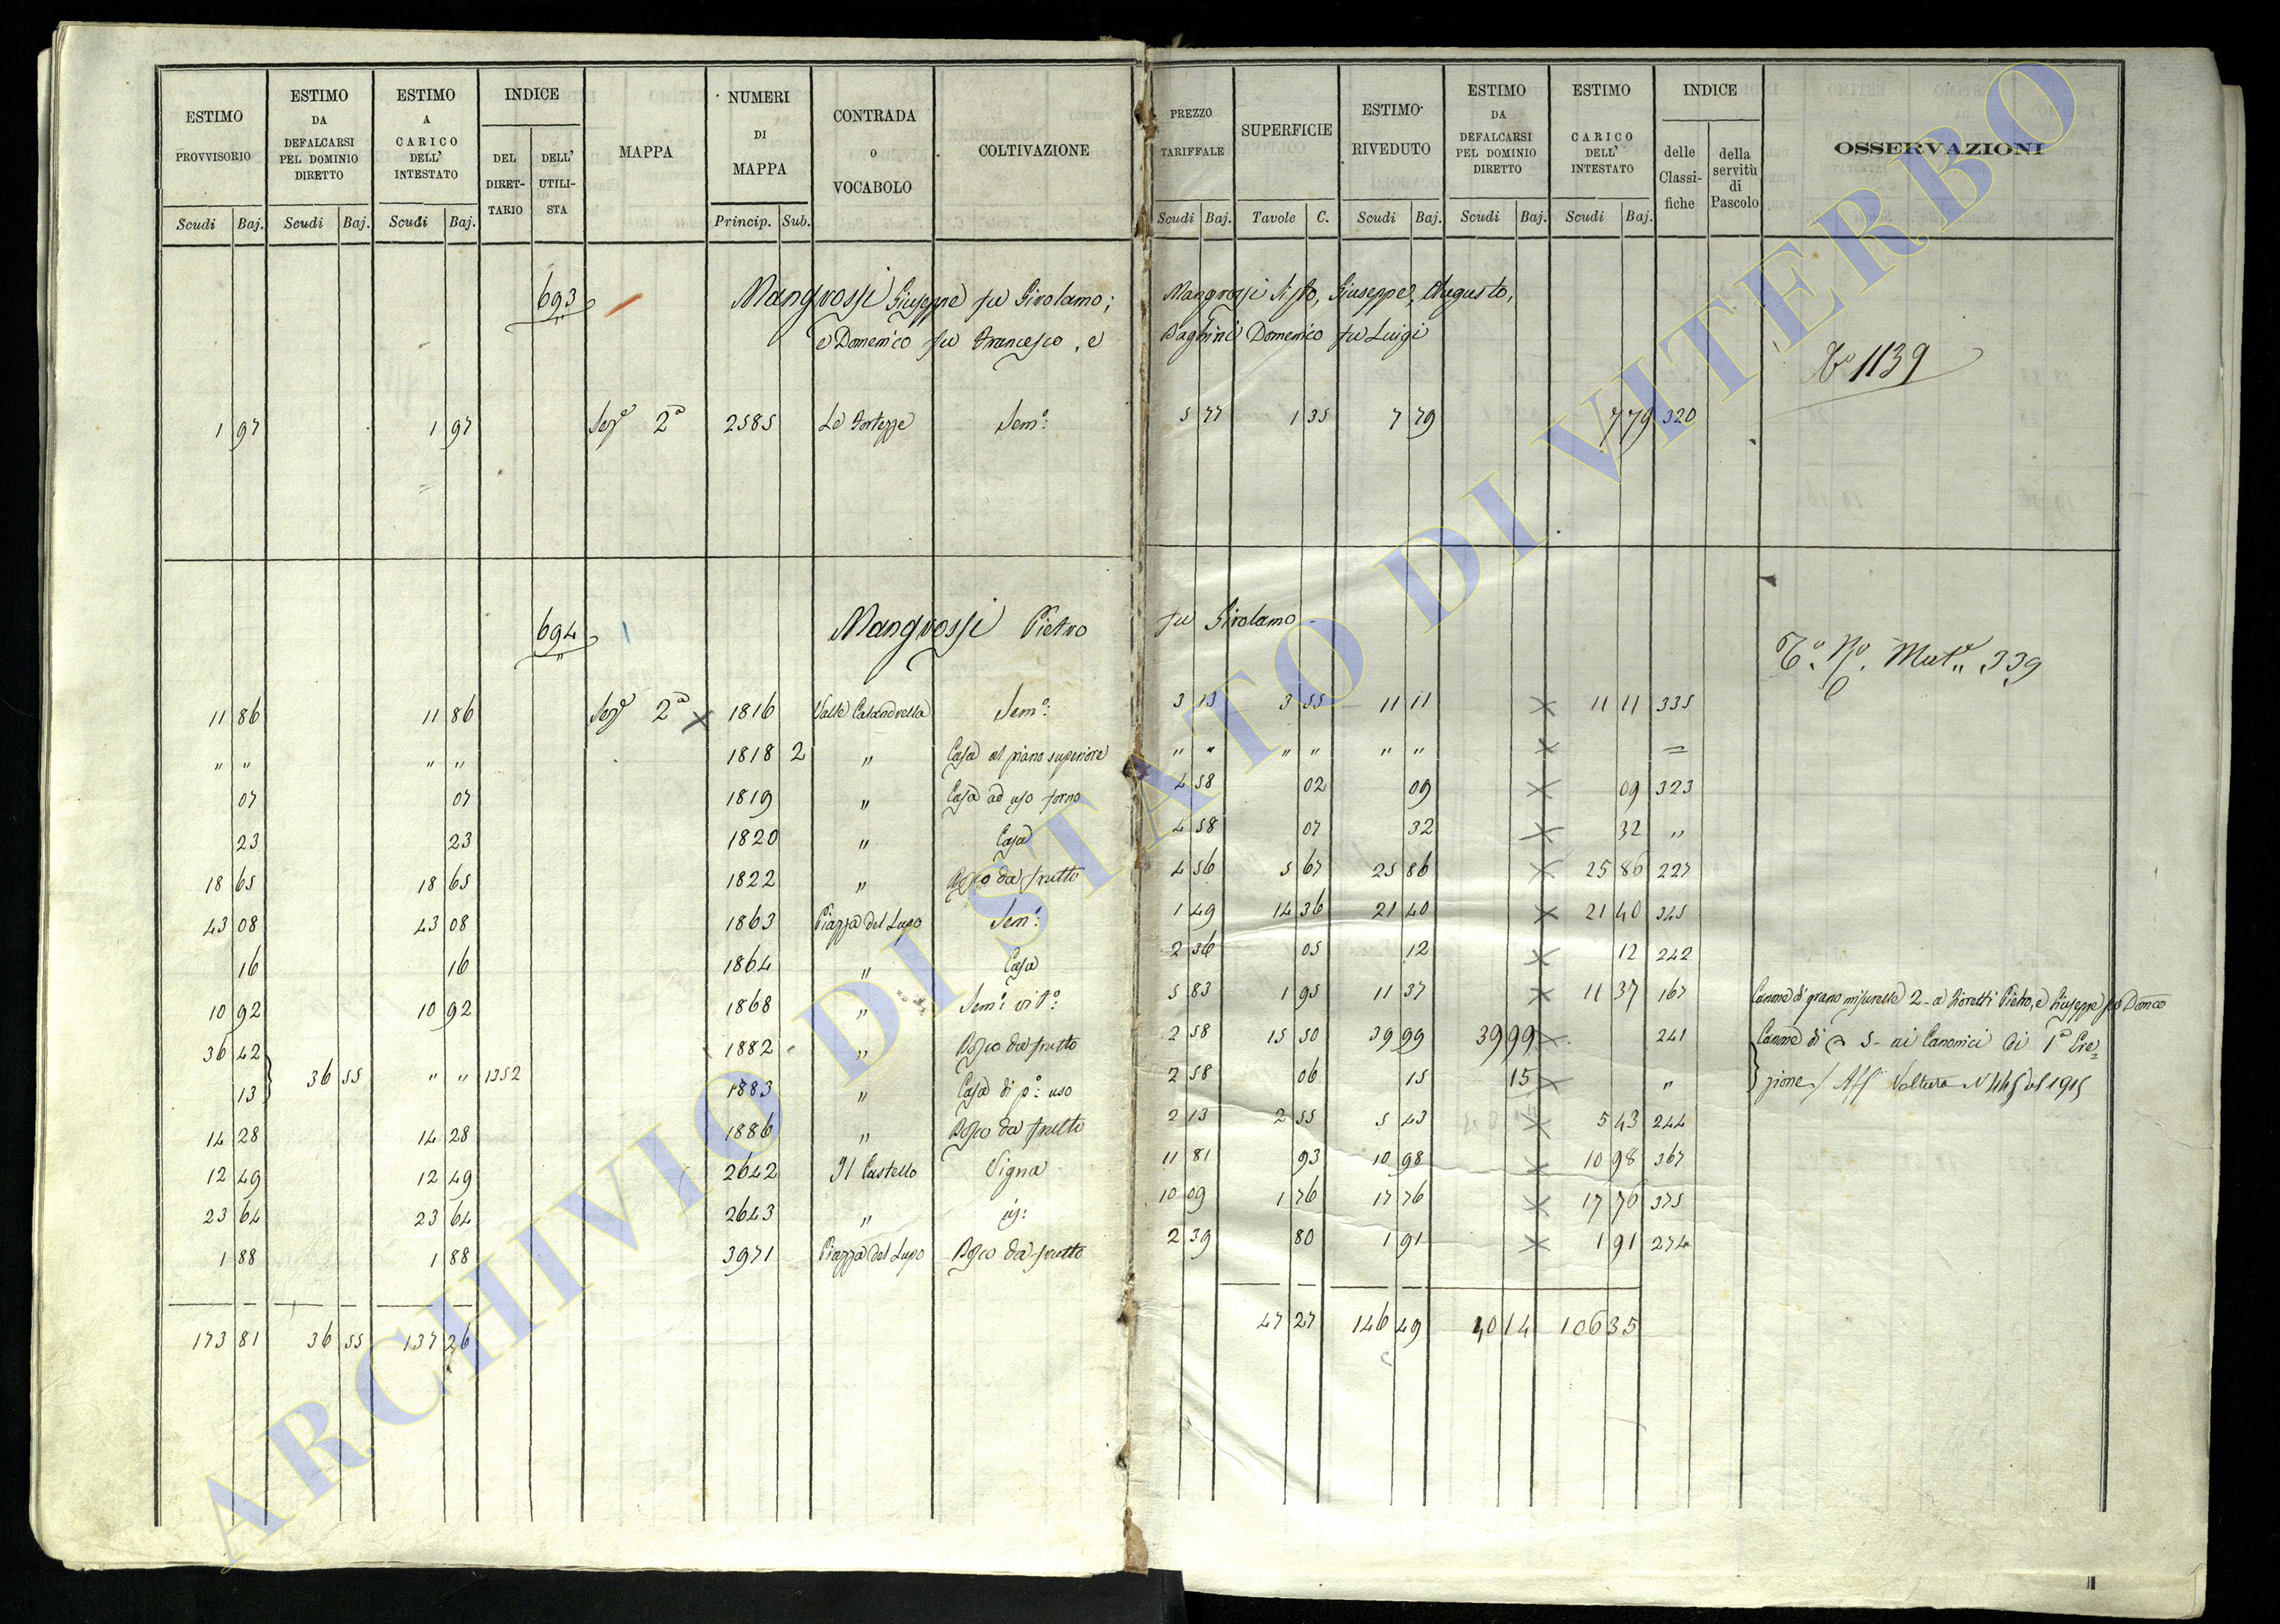 ESTIMO PROVVISORIO | ESTIMO DA DEFALCARSI PEL DOMINIO DIRETTO | ESTIMO A CARICO DELL' INTESTATO | INDICE DEL DIRET-TARIO | DELL' UTILI-STA | MAPPA | NUMERI DI MAPPA | CONTRADA O VOCABOLO | COLTIVAZIONE | PREZZO TARIFFALE | SUPERFICIE | ESTIMO RIVEDUTO | ESTIMO DA DEFALCARSI PEL DOMINIO DIRETTO | ESTIMO CARICO DELL' INTESTATO | INDICE delle Classi-fiche | della servitù di Pascolo | OSSERVAZIONI
Scudi Baj. | Scudi Baj. | Scudi Baj. | Princip. Sub. | Scudi Baj. | Tavole C. | Scudi Baj. | Scudi Baj. | Scudi Baj.
693 Mangrossi Giuseppe fu Girolamo; Mangrossi Sisto, Giuseppe, Augusto,
e Domenico fu Francesco, e Baghini Domenico fu Luigi
1139
1 97 | 1 97 | Sez.e 2a | 2585 | Le Fortezze | Sem.o: | 5 77 | 1 35 | 7 79 | 7 79 | 320
694 Mangrossi Pietro fu Girolamo
Mut. 339
11 86 | 11 86 | Sez.e 2a | 1816 | Valle Calandrella | Sem.o: | 3 13 | 3 55 | 11 11 | 11 11 | 335
" " | " " | 1818 2 | " | Casa al piano superiore | " " | " " | " " | =
07 | 07 | 1819 | " | Casa ad uso forno | 4 58 | 02 | 09 | 09 | 323
23 | 23 | 1820 | " | Casa | 4 58 | 07 | 32 | 32 | "
18 65 | 18 65 | 1822 | " | Bosco da frutto | 4 56 | 5 67 | 25 86 | 25 86 | 227
43 08 | 43 08 | 1863 | Piazza del Lupo | Sem.o: | 1 49 | 14 36 | 21 40 | 21 40 | 345
16 | 16 | 1864 | " | Casa | 2 36 | 05 | 12 | 12 | 242
10 92 | 10 92 | 1868 | " | Sem.o: vit.o: | 5 83 | 1 95 | 11 37 | 11 37 | 167 | Canone di grano misurelle 2 - a Fioretti Pietro, e Giuseppe fu Domco
36 42 | 1882 | " | Bosco da frutto | 2 58 | 15 50 | 39 99 | 39 99 | 241 | Canone di 5 - ai Canonici di 1a Ere=
13 | 36 55 | " " | 1352 | 1883 | " | Casa di p.o: uso | 2 58 | 06 | 15 | 15 | " | zione / Aff Voltura N 445 del 1915
14 28 | 14 28 | 1886 | " | Bosco da frutto | 2 13 | 2 55 | 5 43 | 5 43 | 244
12 49 | 12 49 | 2642 | Il Castello | Vigna | 11 81 | 93 | 10 98 | 10 98 | 367
23 64 | 23 64 | 2643 | " | 10 09 | 1 76 | 17 76 | 17 76 | 375
1 88 | 1 88 | 3971 | Piazza del Lupo | Bosco da frutto | 2 39 | 80 | 1 91 | 1 91 | 274
173 81 | 36 55 | 137 26 | 47 27 | 146 49 | 40 14 | 106 35
ARCHIVIO DI STATO DI VITERBO